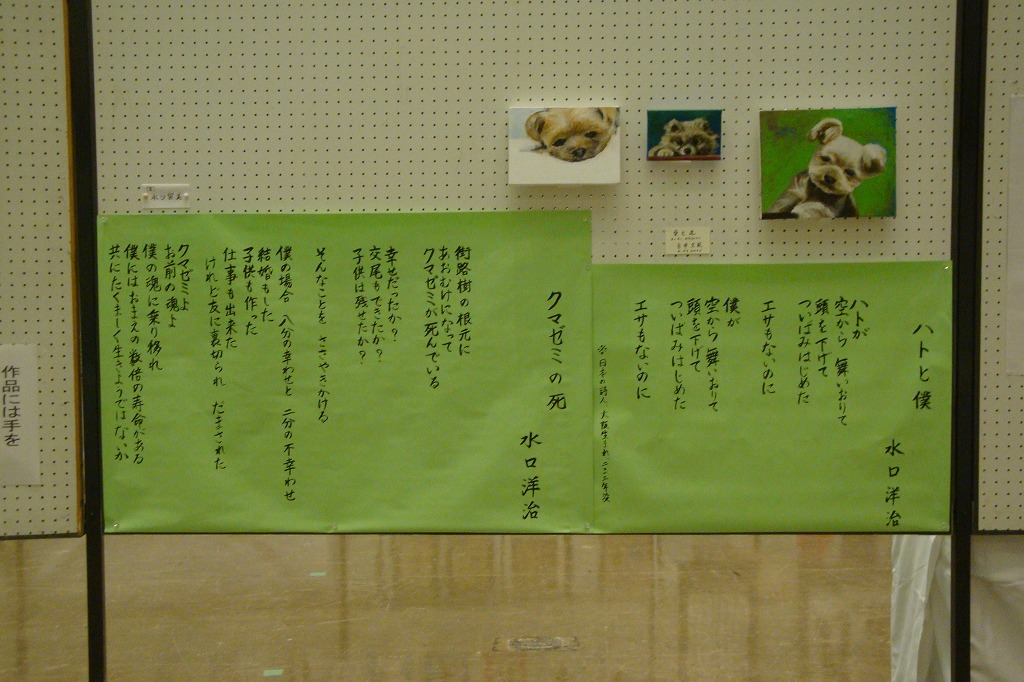 ハトと僕
水口洋治
ハトが
空から 舞いおりて
頭を下げて
ついばみはじめた
エサもないのに
僕が
空から 舞いおりて
頭を下げて
ついばみはじめた
エサもないのに
クマゼミの死
水口洋治
街路樹の根元に
あおむけになって
クマゼミが死んでいる
幸せだったか?
交尾もできたか?
子供は残せたか?
そんなことを ささやきかける
僕の場合 八分の幸わせと 二分の不幸わせ
結婚もした
子供も作った
仕事も出来た
けれど友に裏切られ だまされた
クマゼミよ
お前の魂よ
僕の魂に乗り移れ
僕にはおまえの数倍の寿命がある
共にたくましく生きようではないか
作品には手を